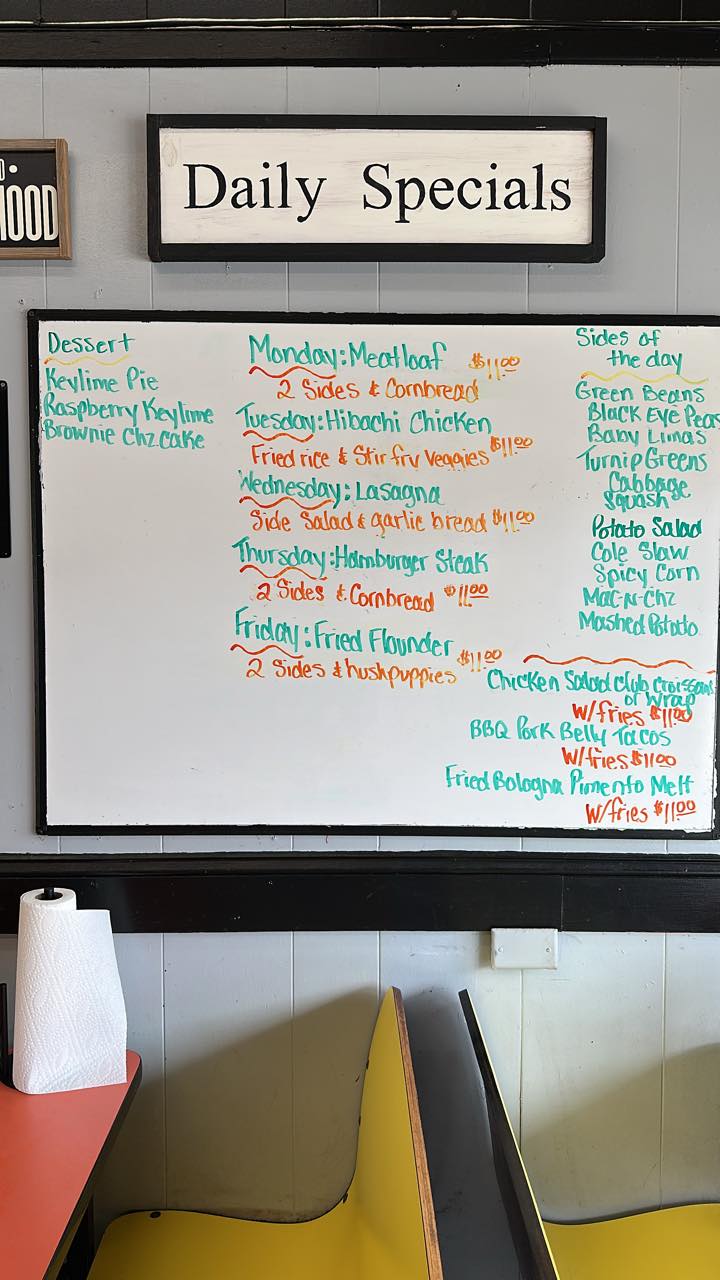 OOD
Daily Specials
Dessert
Keylime Pie
Raspberry Keylime
Brownie Chz Cake
Monday: Meatloaf $11.00
2 Sides & Cornbread
Tuesday: Hibachi Chicken
Fried rice & Stir fry Veggies $11.00
Wednesday: Lasagna
Side Salad & garlic bread $11.00
Thursday: Hamburger Steak
2 Sides & Cornbread $11.00
Friday: Fried Flounder
2 Sides & hushpuppies $11.00
Sides of
the day
Green Beans
Black Eye Peas
Baby Limas
Turnip Greens
Cabbage
Squash
Potato Salad
Cole Slaw
Spicy Corn
Mac-N-Chz
Mashed Potato
Chicken Salad Club Croissant
or Wrap
W/fries $11.00
BBQ Pork Belly Tacos
W/fries $11.00
Fried Bologna Pimento Melt
W/fries $11.00